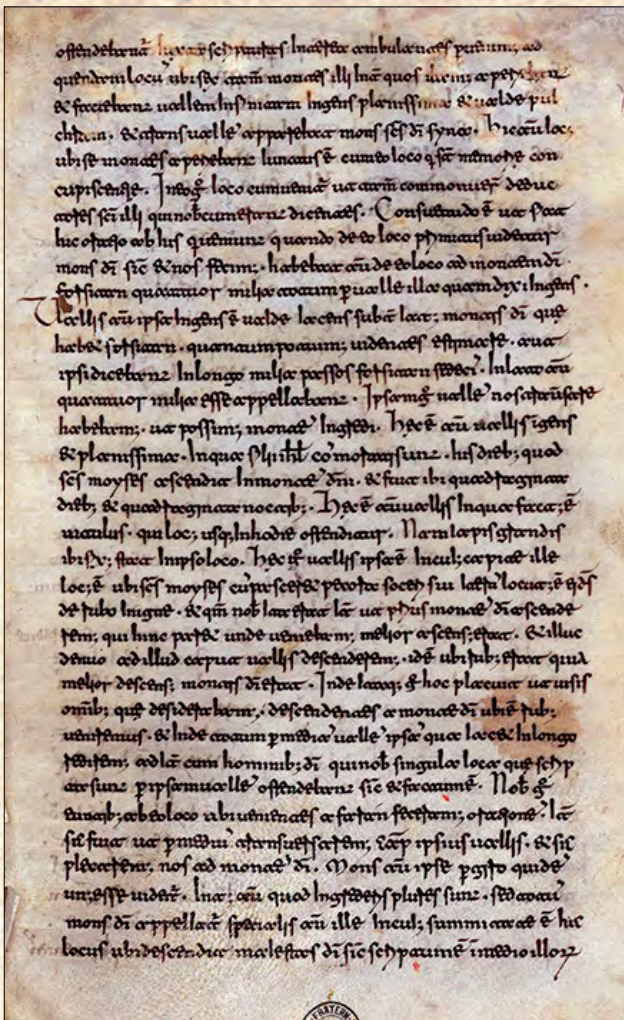 ostendebant᷑ iuxta scripturas Interea ambulantes perveni&#59; ad
quendam locū ubi se tam̄ montes illi inter quos ibam&#59; aperiebant
& faciebant vallem infinitam ingens planissima & valde pul
chram . & trans vallē apparebat mons scs dī syna . Hic autē loc&#59;
ubi se montes aperiebant iunctus ē cum eo loco q̄ st̄ memorie con
cupiscentie . In eo g̊ loco cum venit᷑ ut tam̄ commonuer̄ deduc
tores sci illi qui nobcum erant dicentes . Consuetudo ē ut fiat
hic oratio ab his qui veniunt quando de eo loco primitus videtur
mons dī sic & nos fecim&#59; . habebat autē de eo loco ad montem dī
forsitan quattuor milia totum p valle illa quam dixi ingens .
Vallis autē ipsa ingens ē valde iacens subter lat&#59; montis dī que
habet forsitan . quantum potuim&#59; videntes estimare . aut
ipsi dicebant in longo milia passos forsitan sedeci . In lato autē
quattuor milia esse appellabant . Ipsam g̊ vallē nos traversare
habebam&#59; . ut possim&#59; montē ingredi . Hec ē autē vallis igens
& planissima . In qua filii isrl cōmorati sunt . his dieb&#59; quod
scs moyses ascendit in montē dni . & fuit ibi quadraginta
dieb&#59; & quadraginta noctib&#59; . Hec ē autē vallis in qua factus&#59; ē
vitulus . qui loc&#59; usq&#59; in hodie ostenditur . Nam lapis grandis
ibi fix&#59; stat in ipso loco . Hec g̊ vallis ipsa ē in cui&#59; capite ille
loc&#59; ē ubi scs moyses cū pasceret pecora soceri sui iterū locut&#59; ē ei ds
de rubo in igne . & qm̄ nob iter erat ut primus montē dī ascende
rem&#59; qui hinc paret unde veniebam&#59; melior ascens&#59; erat . & illuc
denuo ad illud caput vallis descenderem&#59; . idē ubi rub&#59; erat quia
melior descens&#59; montis dī erat . Inde itaq&#59; g̊ hoc placuit ut visis
omīb&#59; que desiderabam&#59; . descendentes a monte dī ubi ē rub&#59;
veniremus . & inde totum p mediā vallē ipsā qua iacet in longo
rediremus&#59; ad iter cum hominib&#59; dī qui nob singula loca que scrip
ta sunt p ipsam vallē ostendebant sic & factum ē . Nob g̊
euntib&#59; ab eo loco ubi venientes a faran feceram&#59; orationē . iter
sic fuit ut p mediū transversarem&#59; cap ipsius vallis . & sic
plecarem&#59; nos ad montē dī . Mons autē ipse p giro quidē
un&#59; esse videt᷑ . Intus autē quod ingrederis plures sunt . sed totū
mons dī appellat᷑ specialis autē ille in cui&#59; summitate ē hic
locus ubi descendit maiestas dī sic scriptum ē in medio illorū